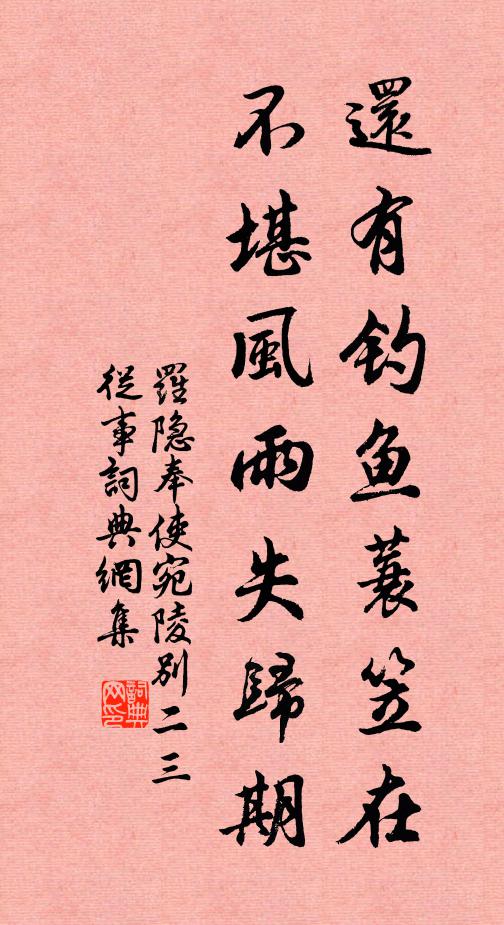 還有釣鱼蓑笠在
不堪風雨失歸期
羅隐奉使宛陵别二三
從事詞典網集
詞典网印